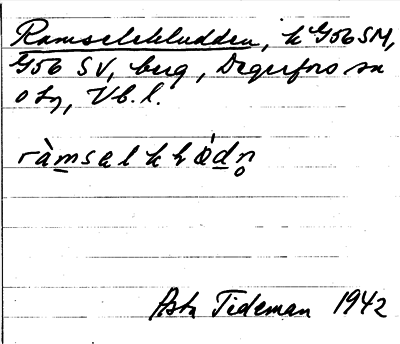 Ramselekludden, k G56 SM,
G56 SV, berg, Degerfors sn
o tg, Vb. l.
ràmsəlkl
Asta Tideman 1942